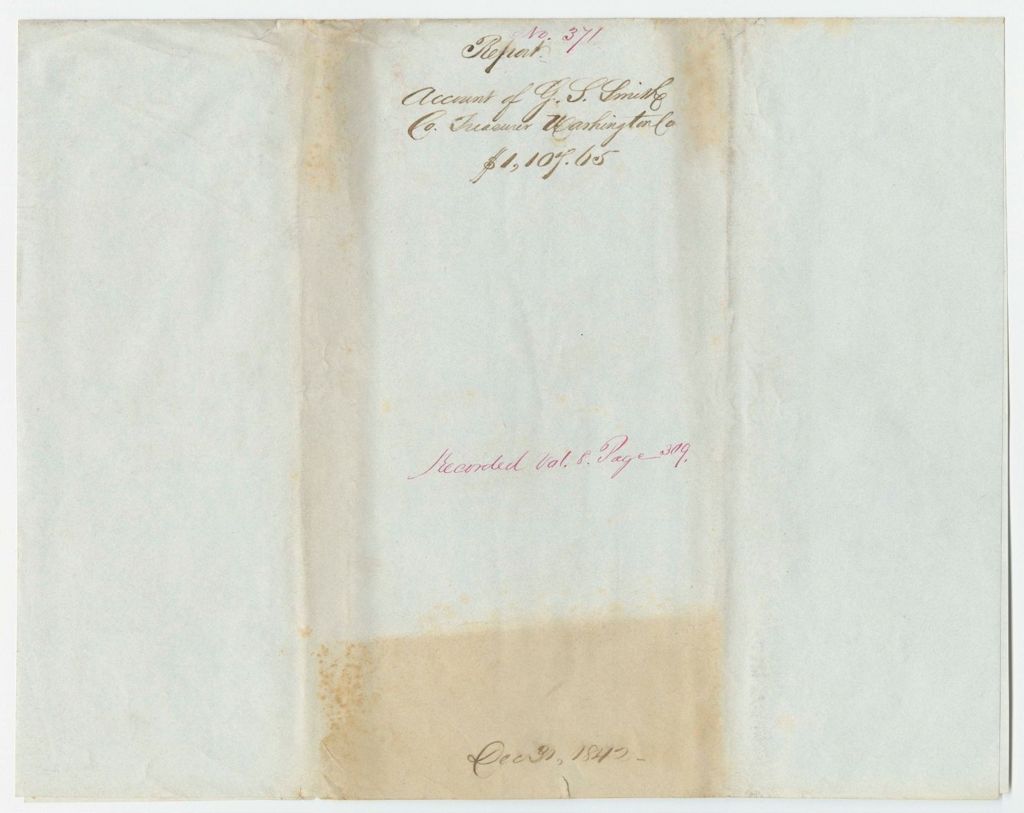 No. 371
Report
Account of G. S. Smith
Co. Treasurer Washington Co
$1,107.65
Recorded Vol. 8. Page 309.
Dec 31, 1842